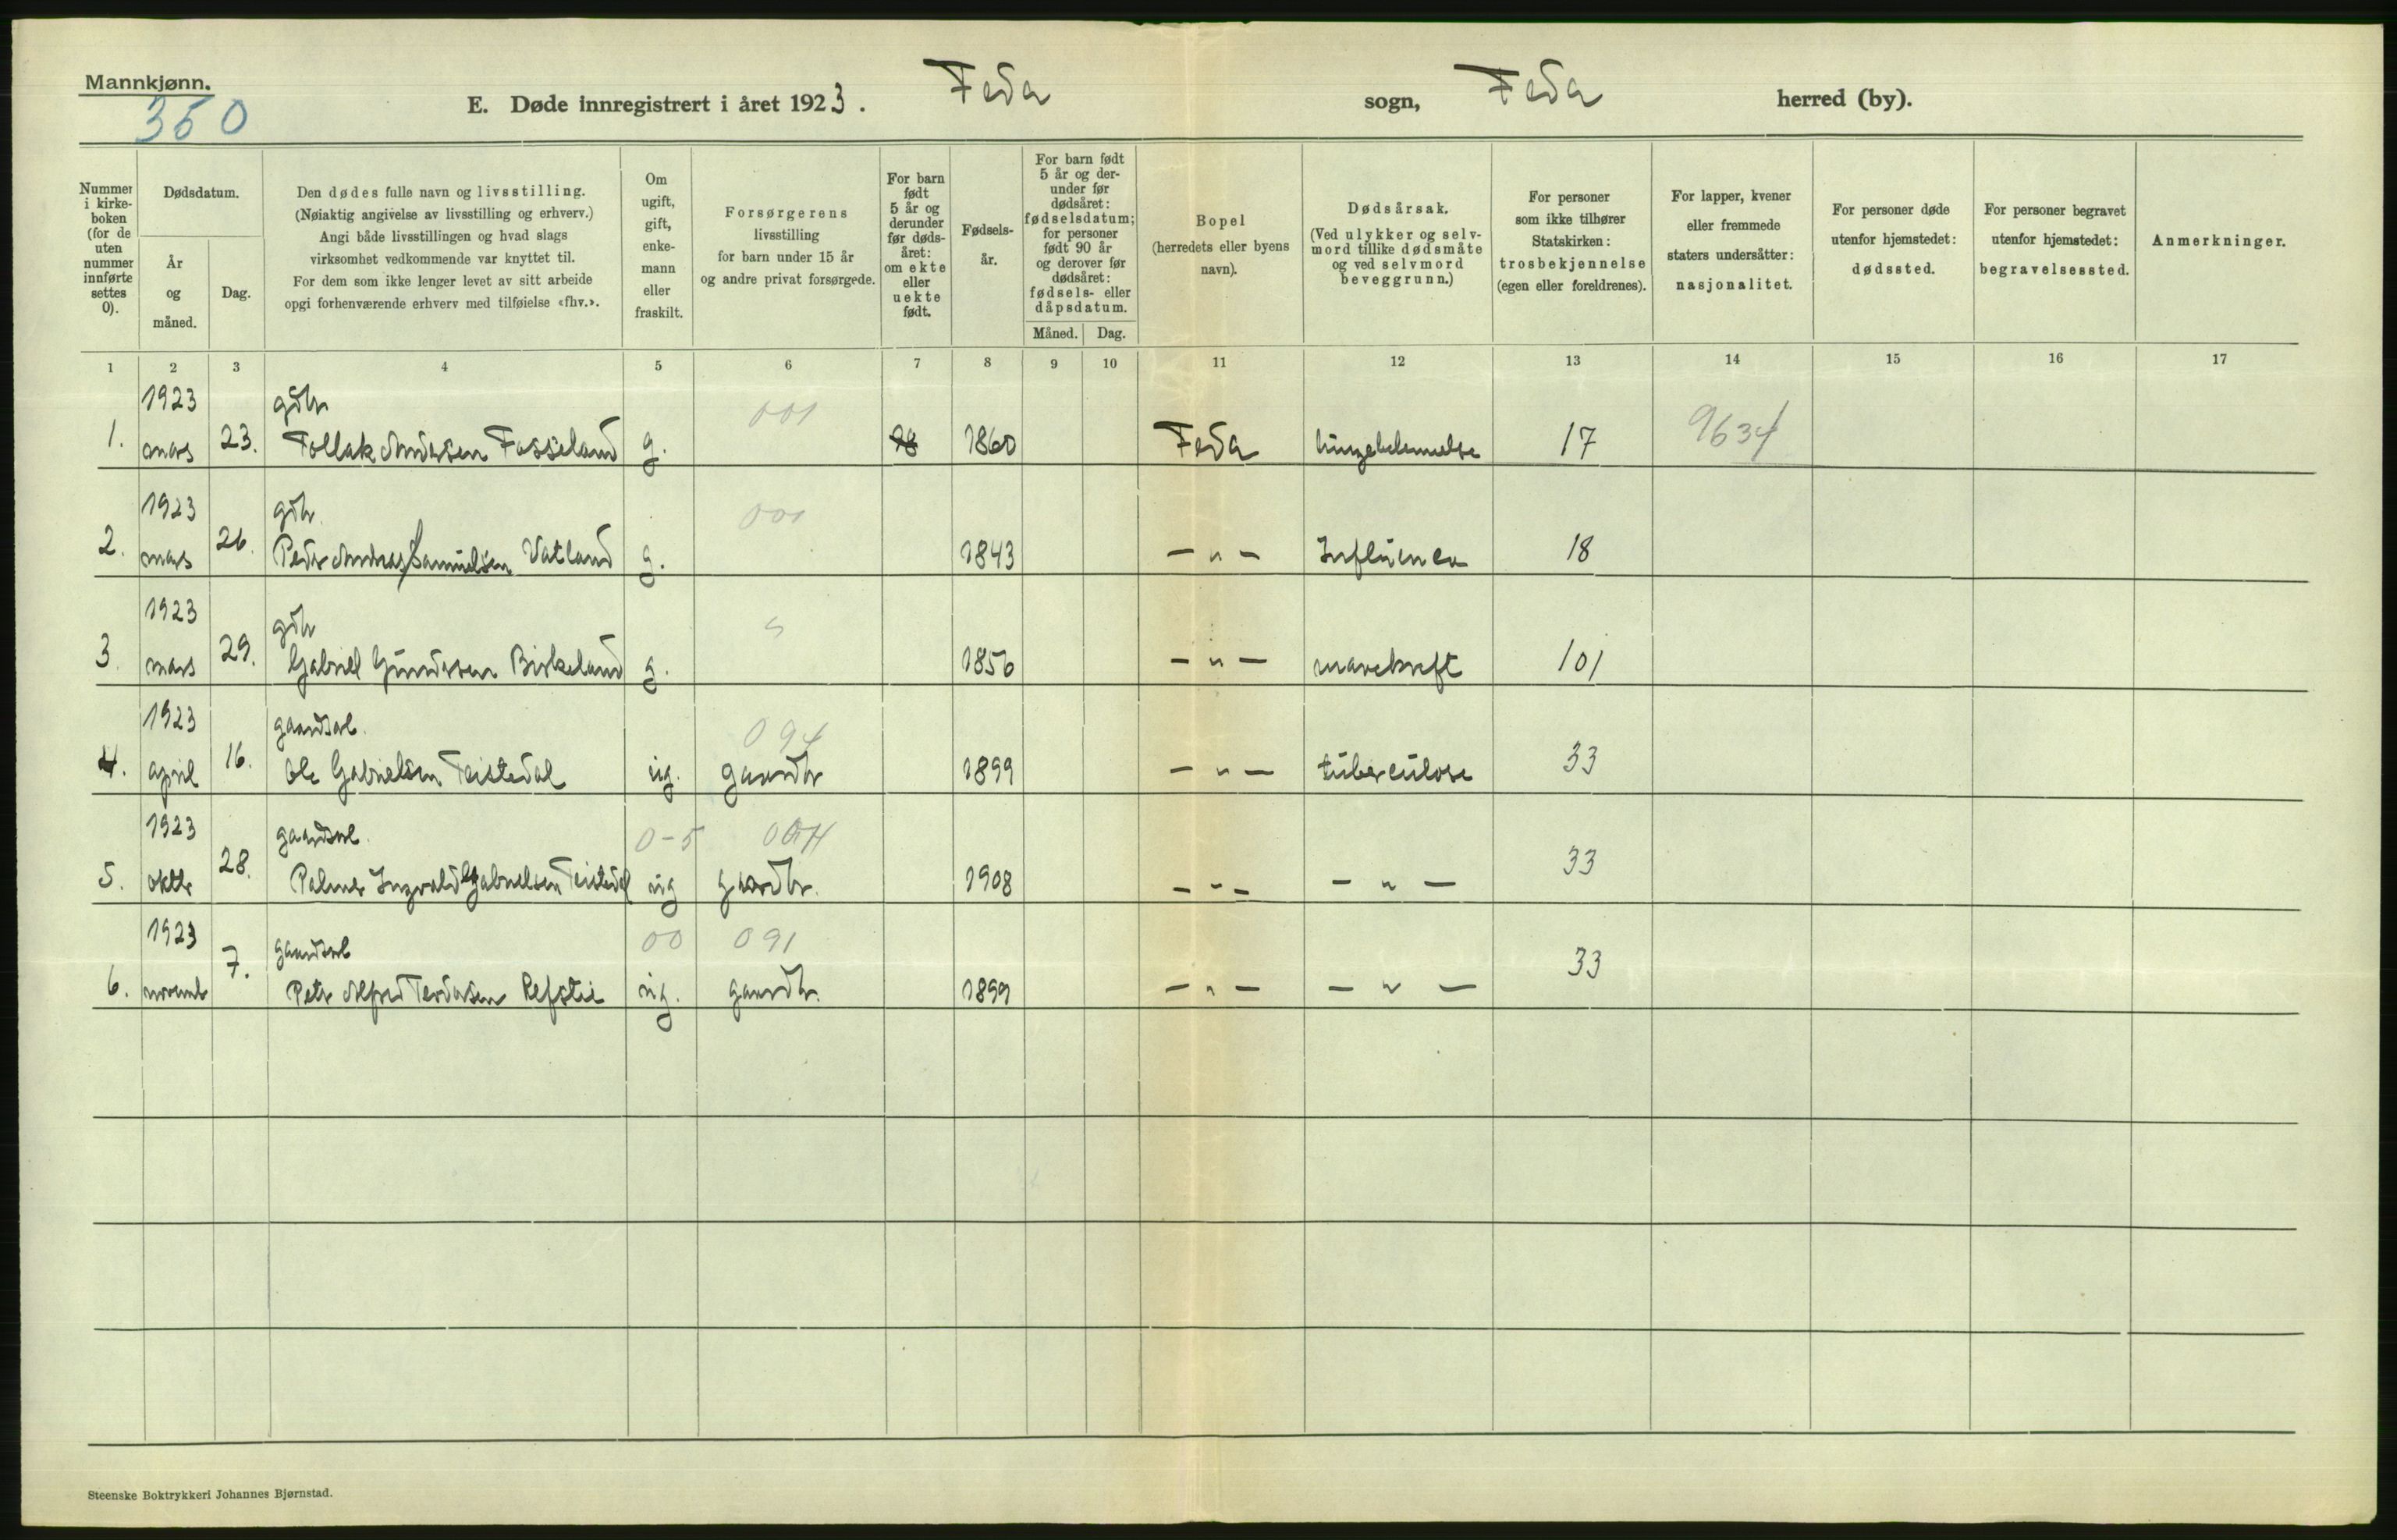 Mannkjønn.
350
E. Døde innregistrert i året 1923. Feda sogn, Feda herred (by).
Nummer i kirke-boken (for de uten nummer innførte settes 0).
Dødsdatum.
År og måned.
Dag.
Den dødes fulle navn og livsstilling.
(Nøiaktig angivelse av livsstilling og erhverv.)
Angi både livsstillingen og hvad slags
virksomhet vedkommende var knyttet til.
For dem som ikke lenger levet av sitt arbeide
opgi forhenværende erhverv med tilføielse «fhv.».
Om ugift, gift, enke-mann eller fraskilt.
Forsørgerens
livsstilling
for barn under 15 år
og andre privat forsørgede.
For barn født 5 år og derunder før døds-året: om ekte eller uekte født.
Fødsels-år.
For barn født 5 år og der-under før dødsåret: fødselsdatum; for personer født 90 år og derover før dødsåret: fødsels- eller dåpsdatum.
Måned. Dag.
Bopel
(herredets eller byens
navn).
Dødsårsak.
(Ved ulykker og selv-
mord tillike dødsmåte
og ved selvmord
beveggrunn.)
For personer
som ikke tilhører
Statskirken:
trosbekjennelse
(egen eller foreldrenes).
For lapper, kvener
eller fremmede
staters undersåtter:
nasjonalitet.
For personer døde
utenfor hjemstedet:
dødssted.
For personer begravet
utenfor hjemstedet:
begravelsessted.
Anmerkninger.
1 2 3 4 5 6 7 8 9 10 11 12 13 14 15 16 17
1923 gdbr 001
1. mars 23. Tollak Andersen Fosseland g. 1860 Feda lungebetennelse 17 9634
1923 gdbr. 001
2. mars 26. Peder Andreas Samuelsen Vatland g. 1843 — " — Influenca 18
1923 gdbr
3. mars 29. Gabriel Gundersen Birkeland g. 1856 — " — mavekreft 101
1923 gaardsarb. 094
4. april 16. Ole Gabrielsen Teistedal ug. gaardbr 1899 — " — tuberculose 33
1923 gaardsarb. 0-5
5. oktbr 28. Palmer Ingvald Gabrielsen Teistedal ug gaardbr. 1908 — " — — " — 33
1923 gaardsarb 00 091
6. novemb 7. Peter Alfred Tendersen Refstie ug. gaardbr. 1899 — " — — " — 33
Steenske Boktrykkeri Johannes Bjørnstad.